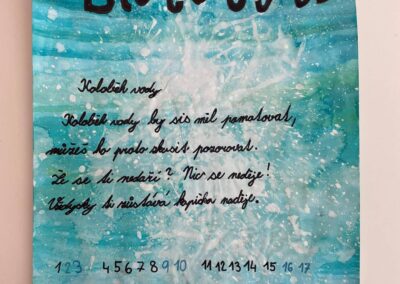 Koloběh vody
Koloběh vody by sis měl pamatovat,
můžeš to proto zkusit pozorovat.
Že se ti nedaří? Nic se neděje!
Vždycky ti zůstává kapička naděje.
1 2 3 4 5 6 7 8 9 10 11 12 13 14 15 16 17